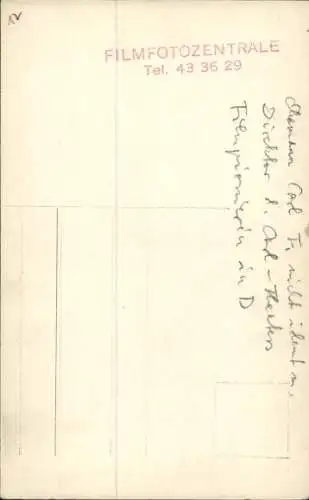 FILMFOTOZENTRALE
Tel. 43 36 29
Ehemann Carl T. nicht ident m.
Direktor d. Carl-Theaters
Filmpionierin in D